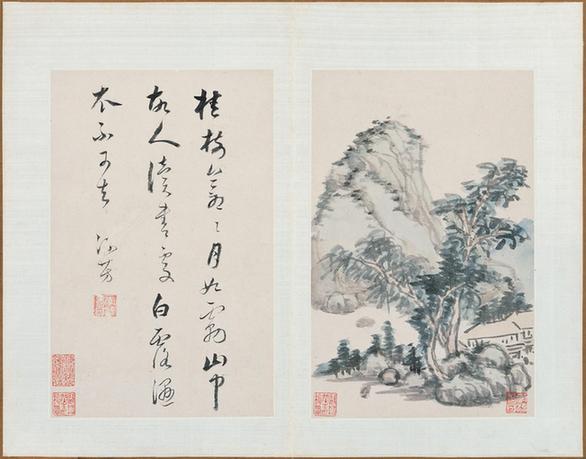 桂樹蒼〻月如霧山中
故人讀書處白露濕
衣不可去